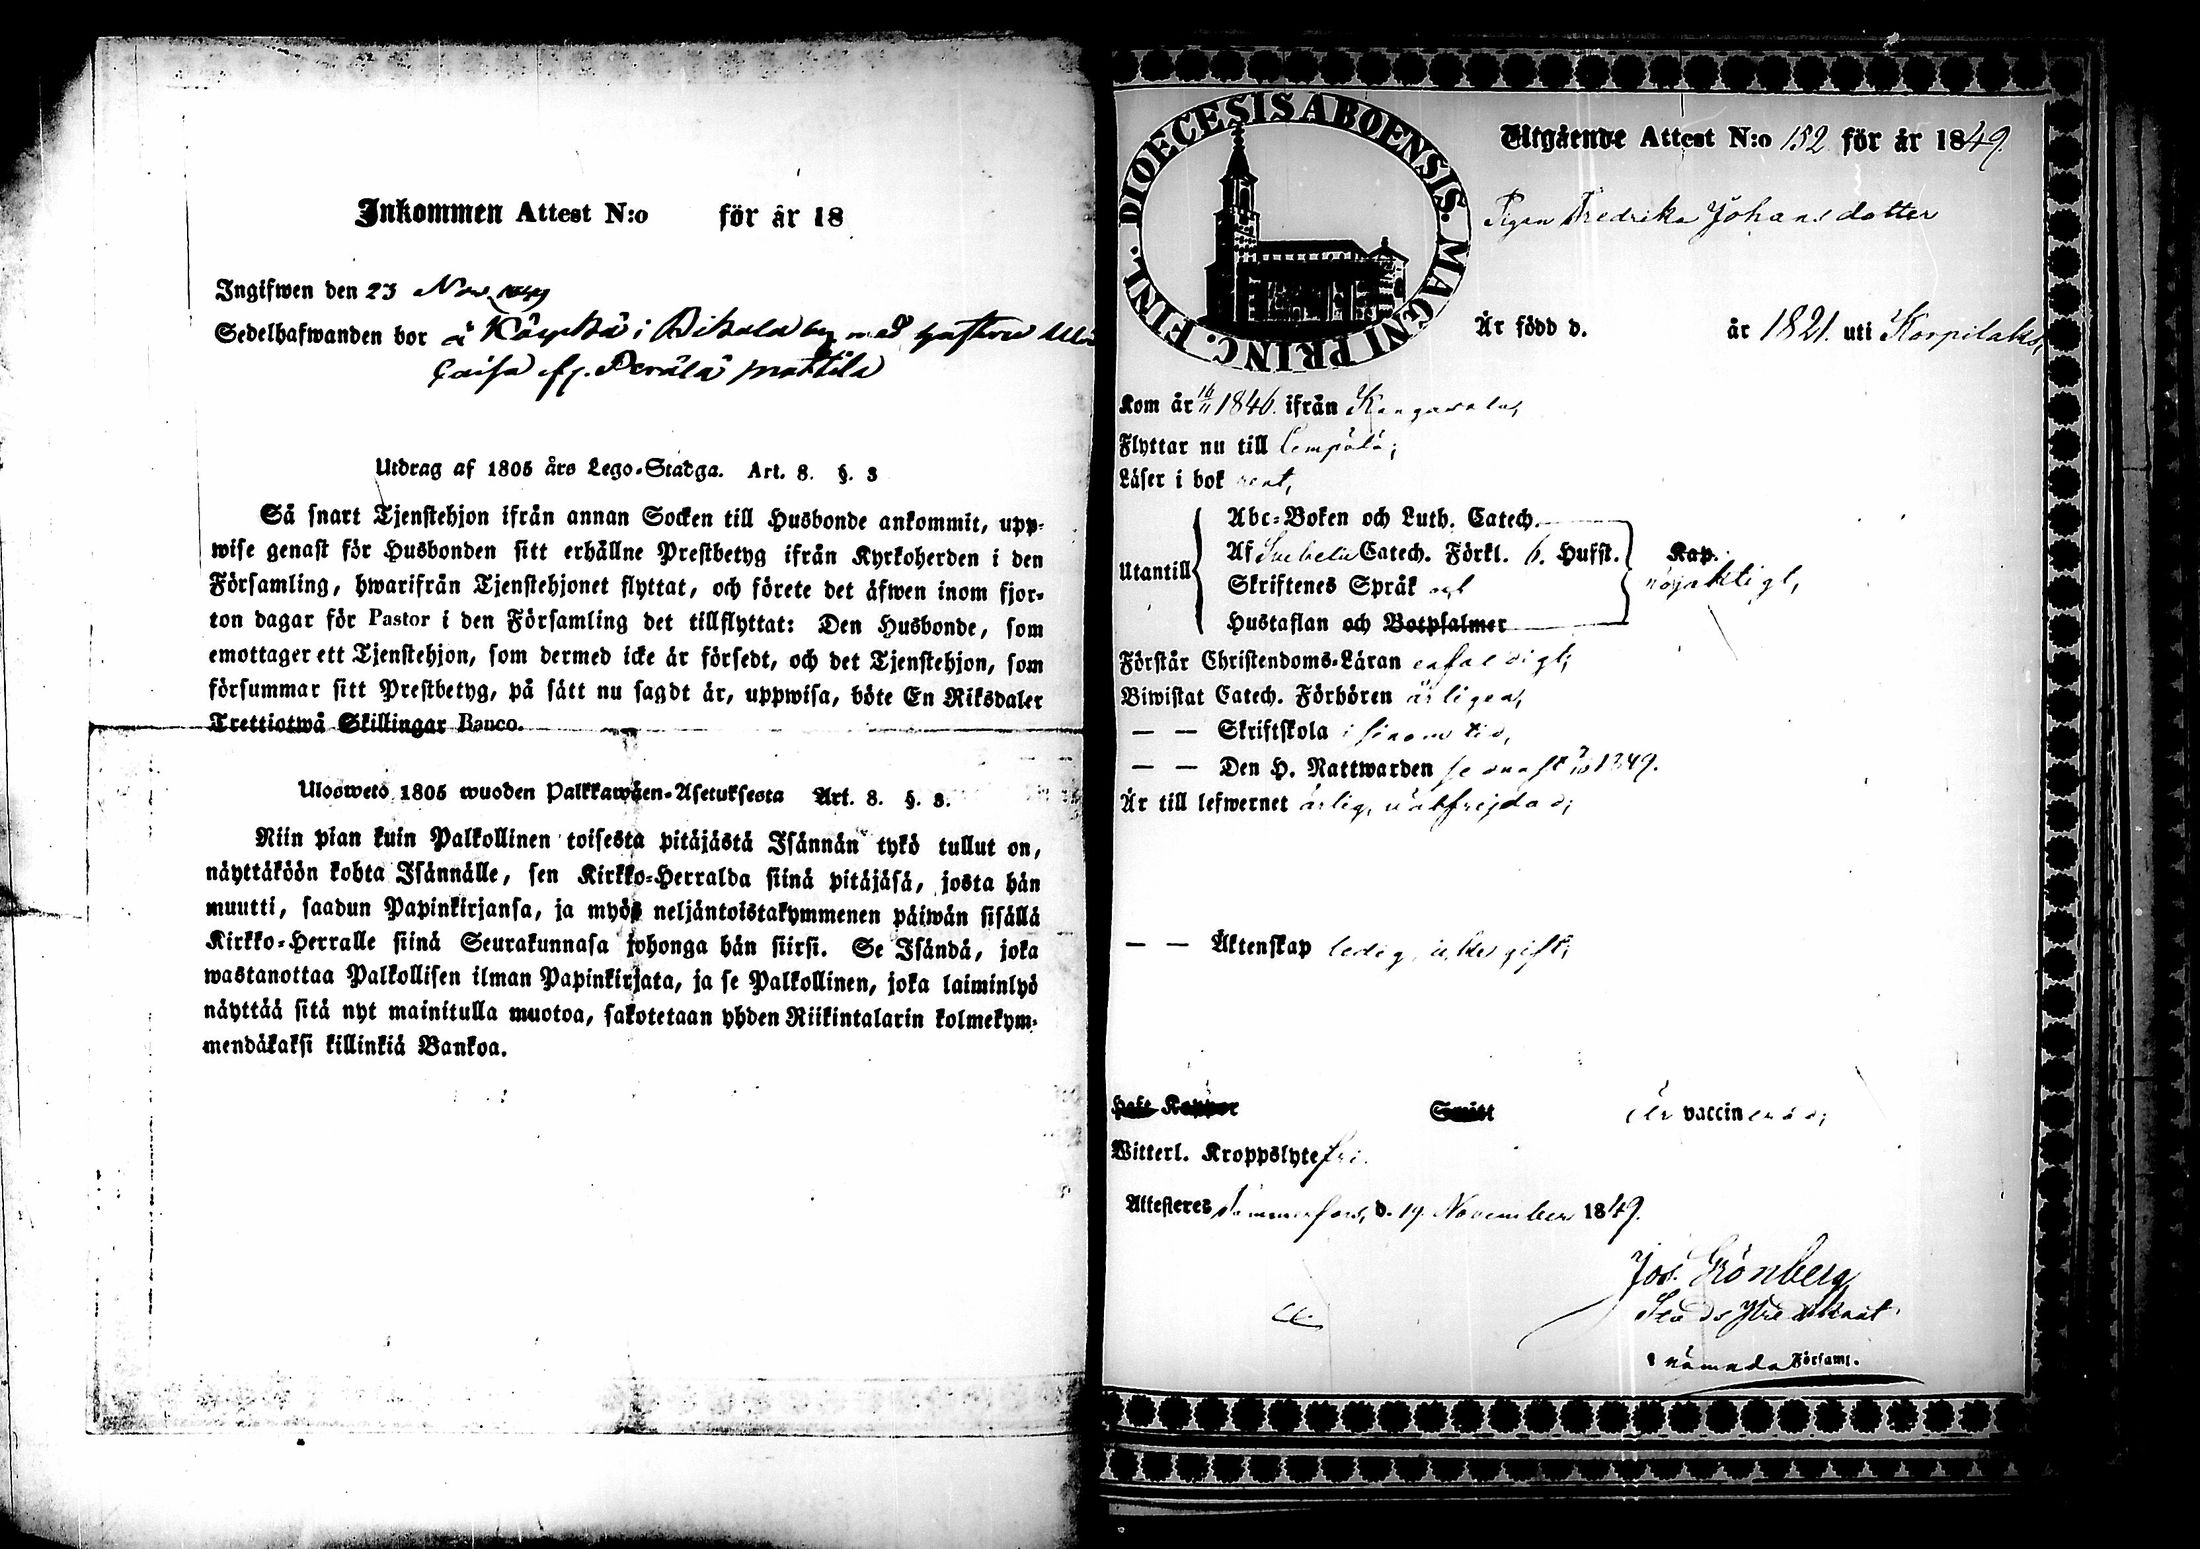 Inkommen Attest N:o för år 18
Ingifwen den 23 Nov. 1849
Sedelhafwanden bor å Käyrkä i by med hustru
Caisa Perälä Mattila
Utdrag af 1805 års Lego-Stadga. Art. 8. §. 3
Så snart Tjenstehjon ifrån annan Socken till Husbonde ankommit, upp-
wise genast för Husbonden sitt erhållne Prestbetyg ifrån Kyrkoherden i den
Församling, hwarifrån Tjenstehjonet flyttat, och förete det äfwen inom fjor-
ton dagar för Pastor i den Församling det tillflyttat: Den Husbonde, som
emottager ett Tjenstehjon, som dermed icke är försedt, och det Tjenstehjon, som
försummar sitt Prestbetyg, på sätt nu sagdt är, uppwisa, böte En Riksdaler
Trettiotwå Skillingar Banco.
Uloswetö 1805 wuoden Palkkawäen-Asetuksesta Art. 8. §. 3.
Niin pian kuin Palkollinen toisesta pitäjästä Isännän tykö tullut on,
näyttäköön kohta Isännälle, sen Kirkko-Herralda siinä pitäjäsä, josta hän
muutti, saadun Papinkirjansa, ja myös neljäntoistakymmenen päiwän sisällä
Kirkko-Herralle siinä Seurakunnasa johonga hän siirsi. Se Isändä, joka
wastanottaa Palkollisen ilman Papinkirjata, ja se Palkollinen, joka laiminlyö
näyttää sitä nyt mainitulla muotoa, sakotetaan yhden Riikintalarin kolmekym-
mendäkaksi killinkiä Bankoa.
FINL. DIOECESIS ABOENSIS. MAGNI PRINC.
Utgående Attest N:o 152 för år 1849.
Pigan Fredrika Johansdotter
Är född d. år 1821. uti Korpilaks,
Kom år 16/11 1846. ifrån Kangasala,
Flyttar nu till Lempälä;
Läser i bok rent,
Utantill
Abc-Boken och Luth. Catech.
Af Svebelii Catech. Förkl. 6. Hufst. Kap.
Skriftenes Språk och nöjaktigt,
Hustaflan och Botpsalmer
Förstår Christendoms-Läran enfaldigt;
Biwistat Catech. Förhören årligen,
— — Skriftskola i sinom tid,
— — Den H. Nattwarden senast 7/10 1849.
Är till lefwernet ärlig, wälfrejdad;
— — Äktenskap ledig, ogift;
Haft Koppor Smitt Är vaccinerad;
Witterl. Kroppslyte fri.
Attesteres Tammerfors, d. 19. November 1849.
Jos. Grönberg
Stads
i nämnda Församl.